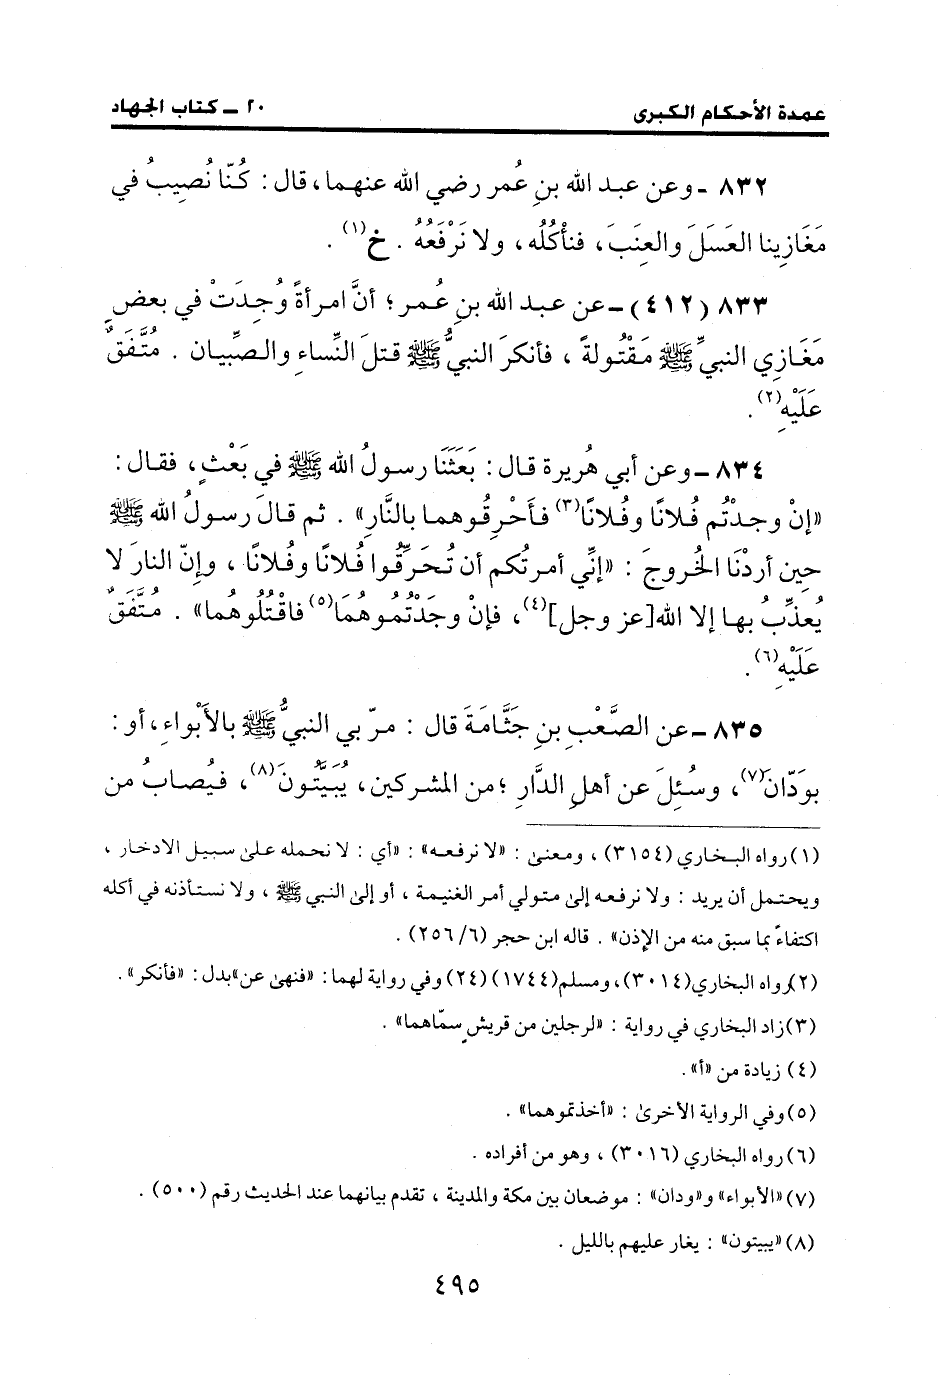 عمدة الأحكام الكبرى
٢٠ ــ كتاب الجهاد
٨٣٢ ـ وعن عبد الله بنِ عُمر رضي الله عنهما، قال: كُنّا نُصِيبُ في
مَغَازِينا العَسَلَ والعِنَبَ، فنأْكُلُه، ولا نَرْفَعُهُ. خ(١).
٨٣٣ (٤١٢) ـ عن عبد الله بنِ عُمر؛ أنَّ امرأةً وُجِدَتْ في بعضِ
مَغَازِي النبيِّ ﷺ مَقْتُولةً، فأنكرَ النبيُّ ﷺ قتلَ النِّساءِ والصِّبيان. مُتَّفَقٌ
عَلَيْهِ(٢).
٨٣٤ ـ وعن أبي هُريرة قال: بَعَثَنَا رسولُ الله ﷺ في بَعْثٍ، فقال:
«إنْ وجدْتُم فُلانًا وفُلانًا(٣) فأَحْرِقُوهما بالنَّارِ». ثم قالَ رسولُ الله ﷺ
حين أردْنَا الخُروجَ: «إنِّي أمرتُكم أن تُحَرِّقُوا فُلانًا وفُلانًا، وإنّ النارَ لا
يُعذِّبُ بها إلا الله[عز وجل](٤)، فإنْ وجَدْتُموهُمَا(٥) فاقْتُلُوهُما». مُتَّفَقٌ
عَلَيْهِ(٦).
٨٣٥ ـ عن الصَّعْبِ بنِ جَثَّامَةَ قال: مرّ بي النبيُّ ﷺ بالأَبْواءِ، أو:
بوَدّانَ(٧)، وسُئِلَ عن أهلِ الدَّارِ؛ من المشركين، يُبَيَّتُونَ(٨)، فيُصابُ من
(١) رواه البخاري (٣١٥٤)، ومعنى: «لا نرفعه»: «أي: لا نحمله على سبيل الادخار،
ويحتمل أن يريد: ولا نرفعه إلى متولي أمر الغنيمة، أو إلى النبي ﷺ، ولا نستأذنه في أكله
اكتفاءً بما سبق منه من الإذن». قاله ابن حجر (٦/ ٢٥٦).
(٢) رواه البخاري (٣٠١٤)، ومسلم (١٧٤٤) (٢٤) وفي رواية لهما: «فنهى عن» بدل: «فأنكر».
(٣) زاد البخاري في رواية: «لرجلين من قريشٍ سمّاهما».
(٤) زيادة من «أ».
(٥) وفي الرواية الأخرى: «أخذتموهما».
(٦) رواه البخاري (٣٠١٦)، وهو من أفراده.
(٧) «الأبواء» و«ودان»: موضعان بين مكة والمدينة، تقدم بيانهما عند الحديث رقم (٥٠٠).
(٨) «يبيتون»: يغار عليهم بالليل.
٤٩٥